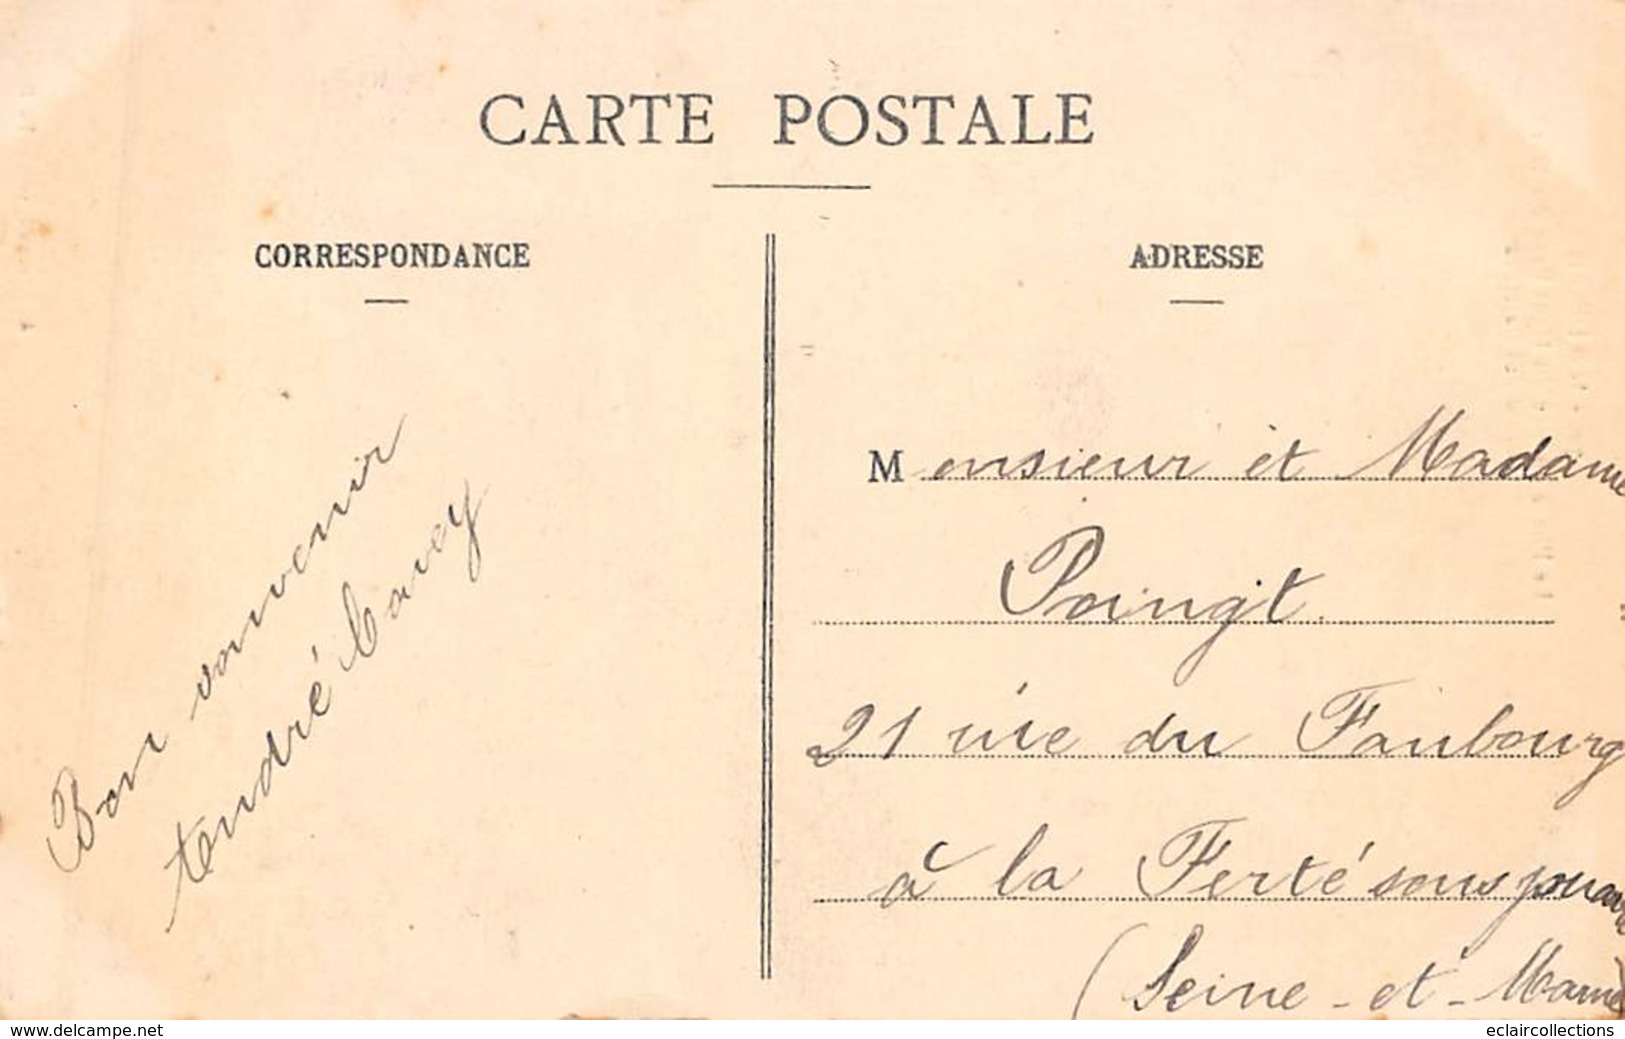 CARTE POSTALE
CORRESPONDANCE
Bon souvenir
ADRESSE
Monsieur et Madame
Poingt
21 rue du Faubourg
à la Ferté sous jouarre
(Seine-et-Marne)
www.delcampe.net
eclaircollections